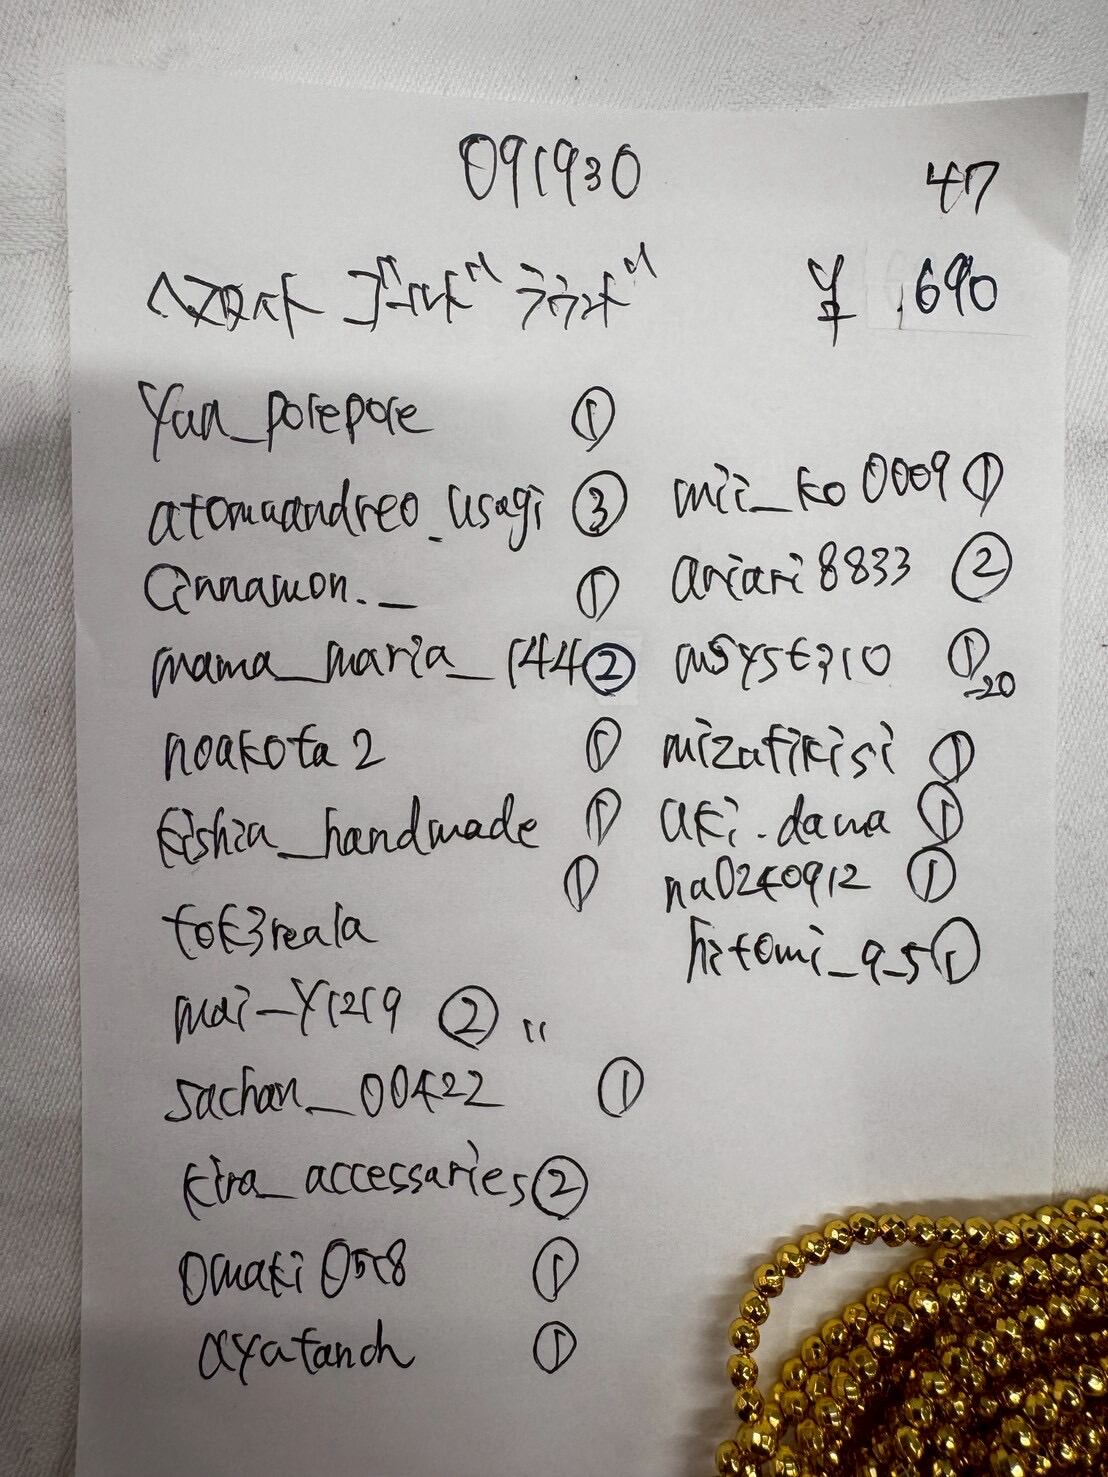 091930
47
ヘマタイト ゴールド ラウンド
¥ 690
yun_porepore ①
atomuandreo_usagi ③
Cinnamon._ ①
mama_maria_144 ②
noakota2 ①
kishia_handmade ①
tok3reala ①
mai-Y1219 ② "
sachan_00422 ①
kira_accessaries ②
omaki0518 ①
ayatanch ①
mii_ko0009 ①
ariari8833 ②
msyst310 ①
-20
mizufikisi ①
aki.dama ①
na0240912 ①
hitomi_9_5 ①